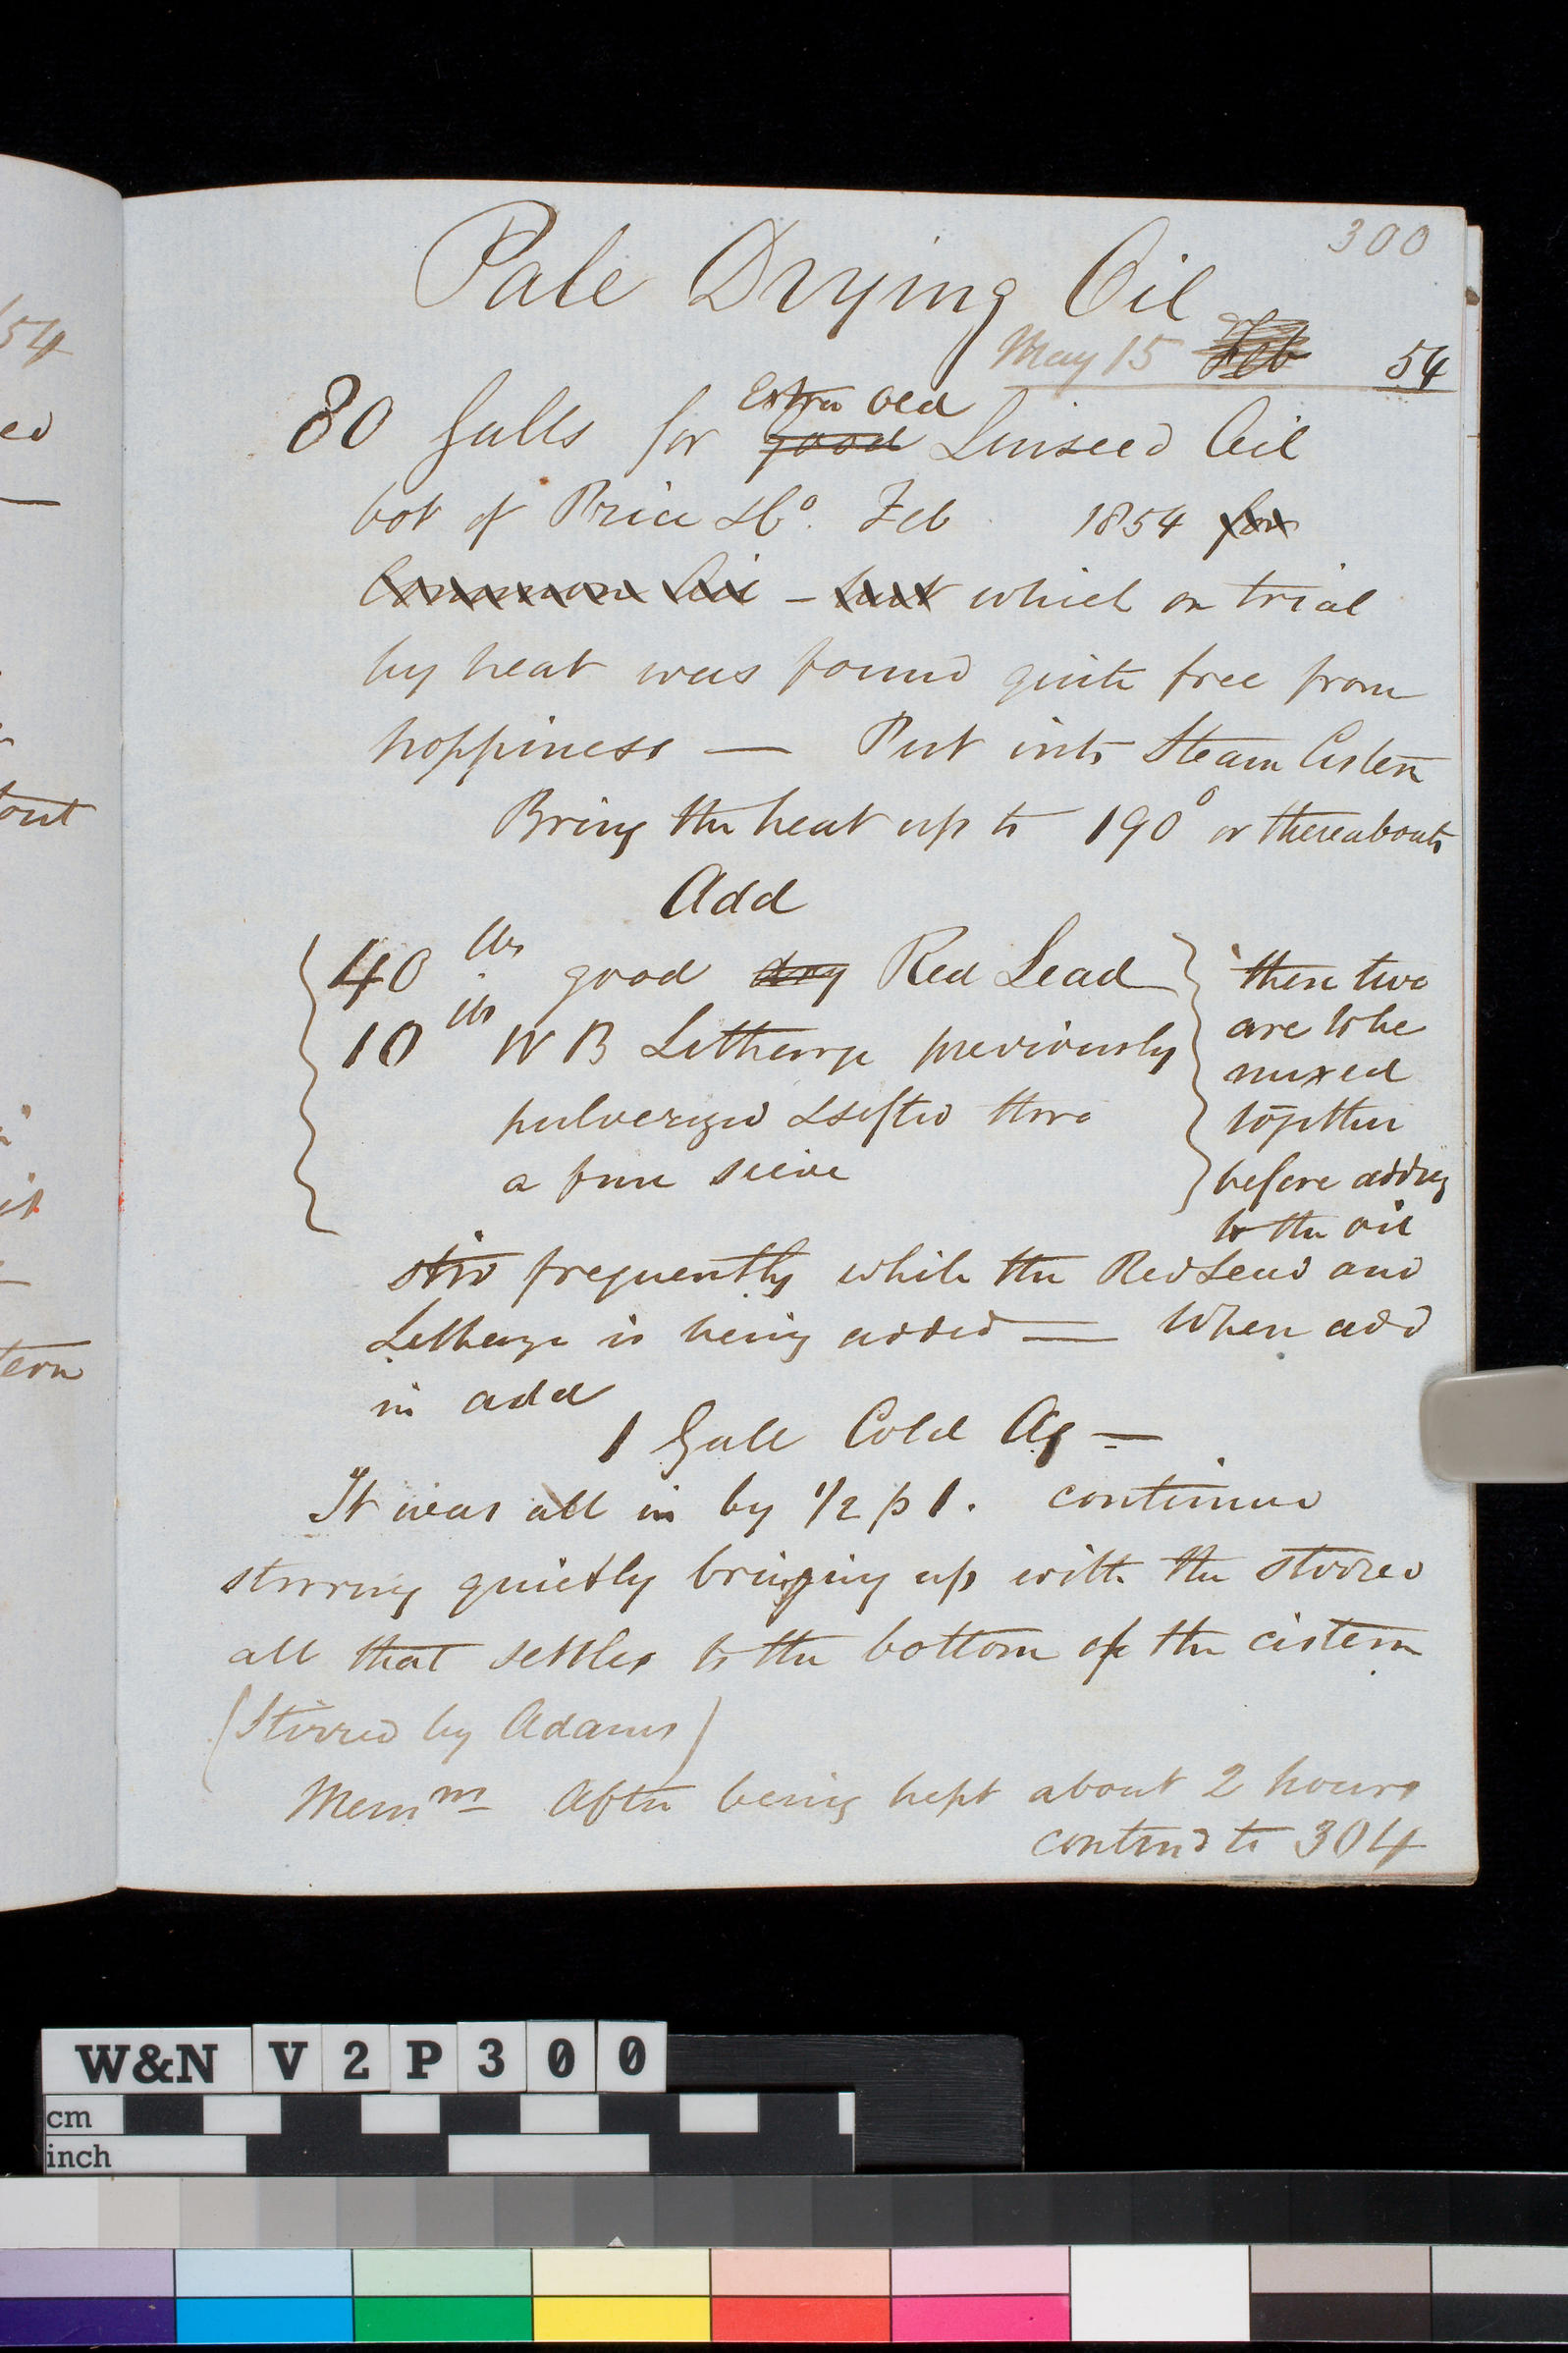 300
Pale Drying Oil
May 15 Feb 54
Extra Old
80 Galls for good Linseed Oil
bot of Price & Co. Feb 1854 for
Common Oil – but which on trial
by heat was found quite free from
hoppiness — Put into Steam Cistern
Bring the heat up to 190° or thereabouts
Add
40 lbs good dry Red Lead
10 lbs W B Litharge previously
pulverized & sifted thro
a fine sieve
these two
are to be
mixed
together
before adding
to the oil
stir frequently while the Red Lead and
Litharge is being added — When add
in add
1 Gall Cold Aq —
It was all in by 1/2 p 1. continue
stirring quietly bringing up with the stirrer
all that settles to the bottom of the cistern
(Stirred by Adams)
Mem m After being kept about 2 hours
contnd to 304
54
ed
out
it
tern
W&N V2P300
cm
inch